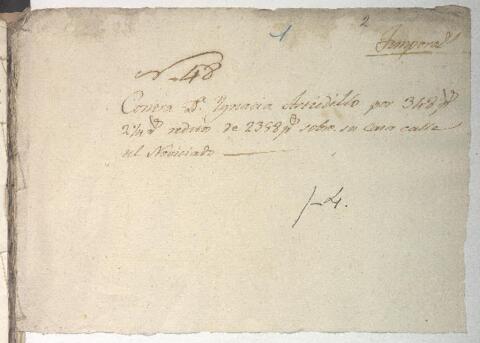 1
2
Tempora.l
N. 48
Contra D.a Ygnacia por 348 p.s
2 1/4 r.s redito de 2358 p.s sobre su casa calle
del Noviciado